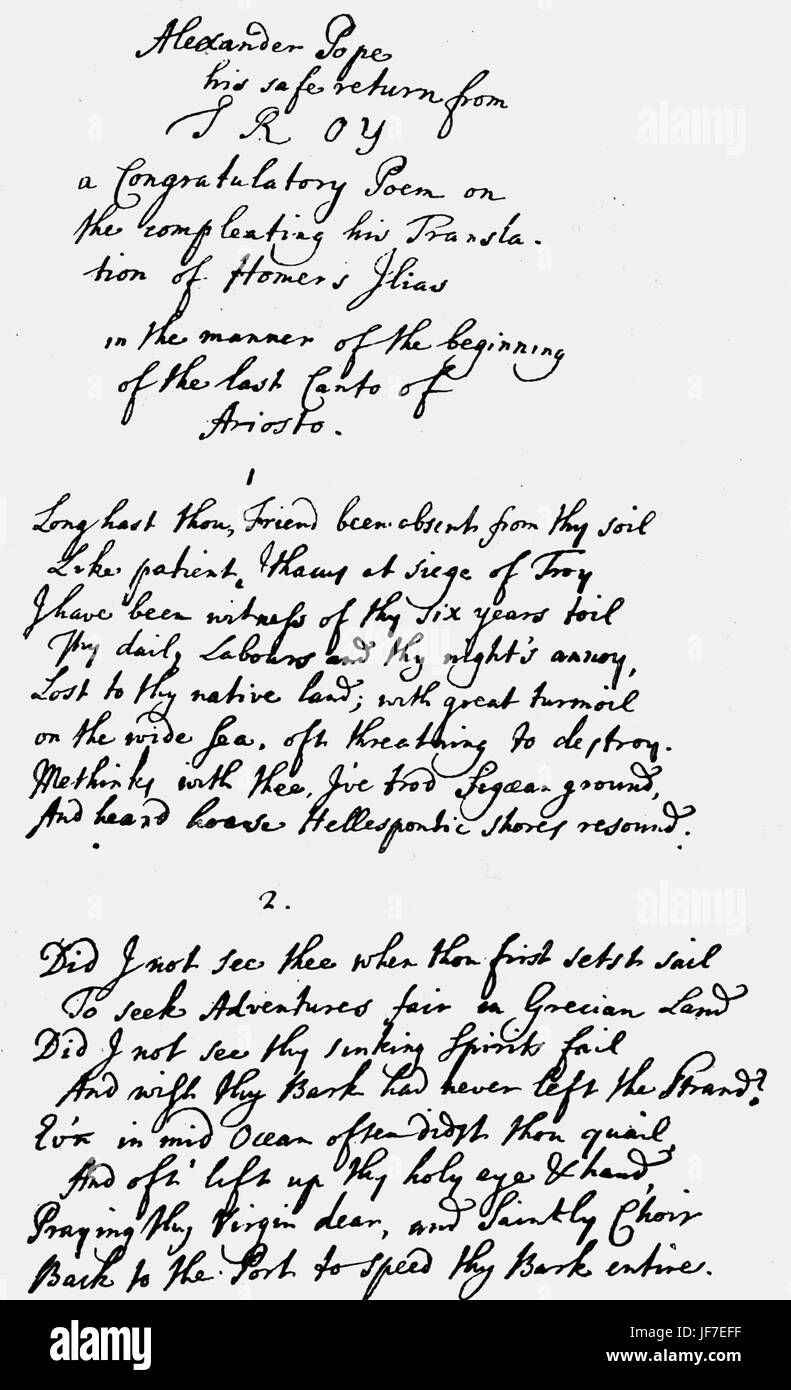 Alexander Pope
his safe return from
TROY
a Congratulatory Poem on
the compleating his Transla-
tion of Homers Ilias
in the manner of the beginning
of the last Canto of
Ariosto.
1
Long hast thou, Friend been absent from thy soil
Like patient Ithacus at siege of Troy
I have been witness of thy six years toil
Thy daily Labours and thy night's annoy,
Lost to thy native land; with great turmoil
on the wide Sea, oft threatning to destroy.
Methinks with thee, I've trod Sigæan ground,
And heard hoarse Hellespontic shores resound.
2.
Did I not see thee when thou first setst sail
To seek Adventures fair in Grecian Land
Did I not see thy sinking Spirits fail
And wish thy Bark had never left the Strand?
Ev'n in mid Ocean often didst thou quail
And oft' lift up thy holy eye & hand,
Praying thy Virgin dear, and Saintly Choir
Back to the Port to speed thy Bark entire.
alamy
Image ID: JF7EFF
www.alamy.com